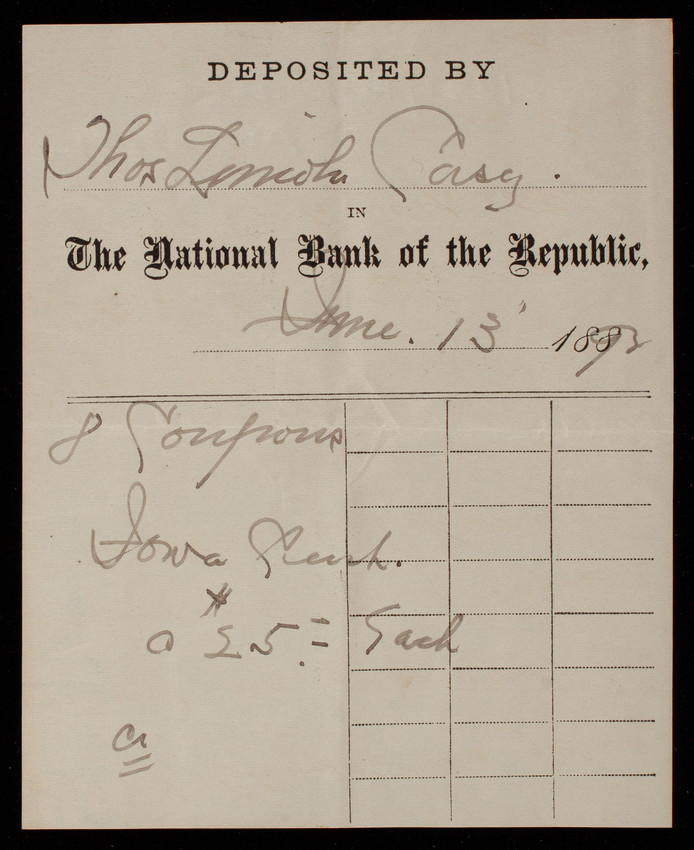 DEPOSITED BY
Thos Lincoln Casey.
IN
The National Bank of the Republic,
June. 13 1892
8 Coupons
Iowa Cent.
@ $25.= Each